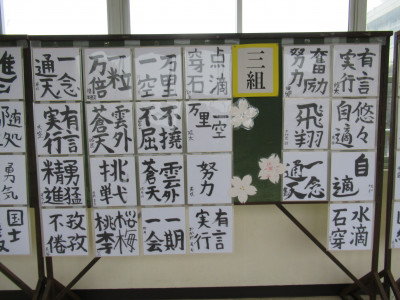 三組
有言
実行
奮励
努力
悠々
自適
飛翔
自適
一念
通天
水滴
石穿
点滴
穿石
万里
一空
一粒
万倍
一念
通天
万里
一空
不撓
不屈
雲外
蒼天
有言
実行
努力
雲外
蒼天
挑戦
勇猛
精進
有言
実行
一期
一会
桜梅
桃李
孜孜
不倦
随処
勇気
国士